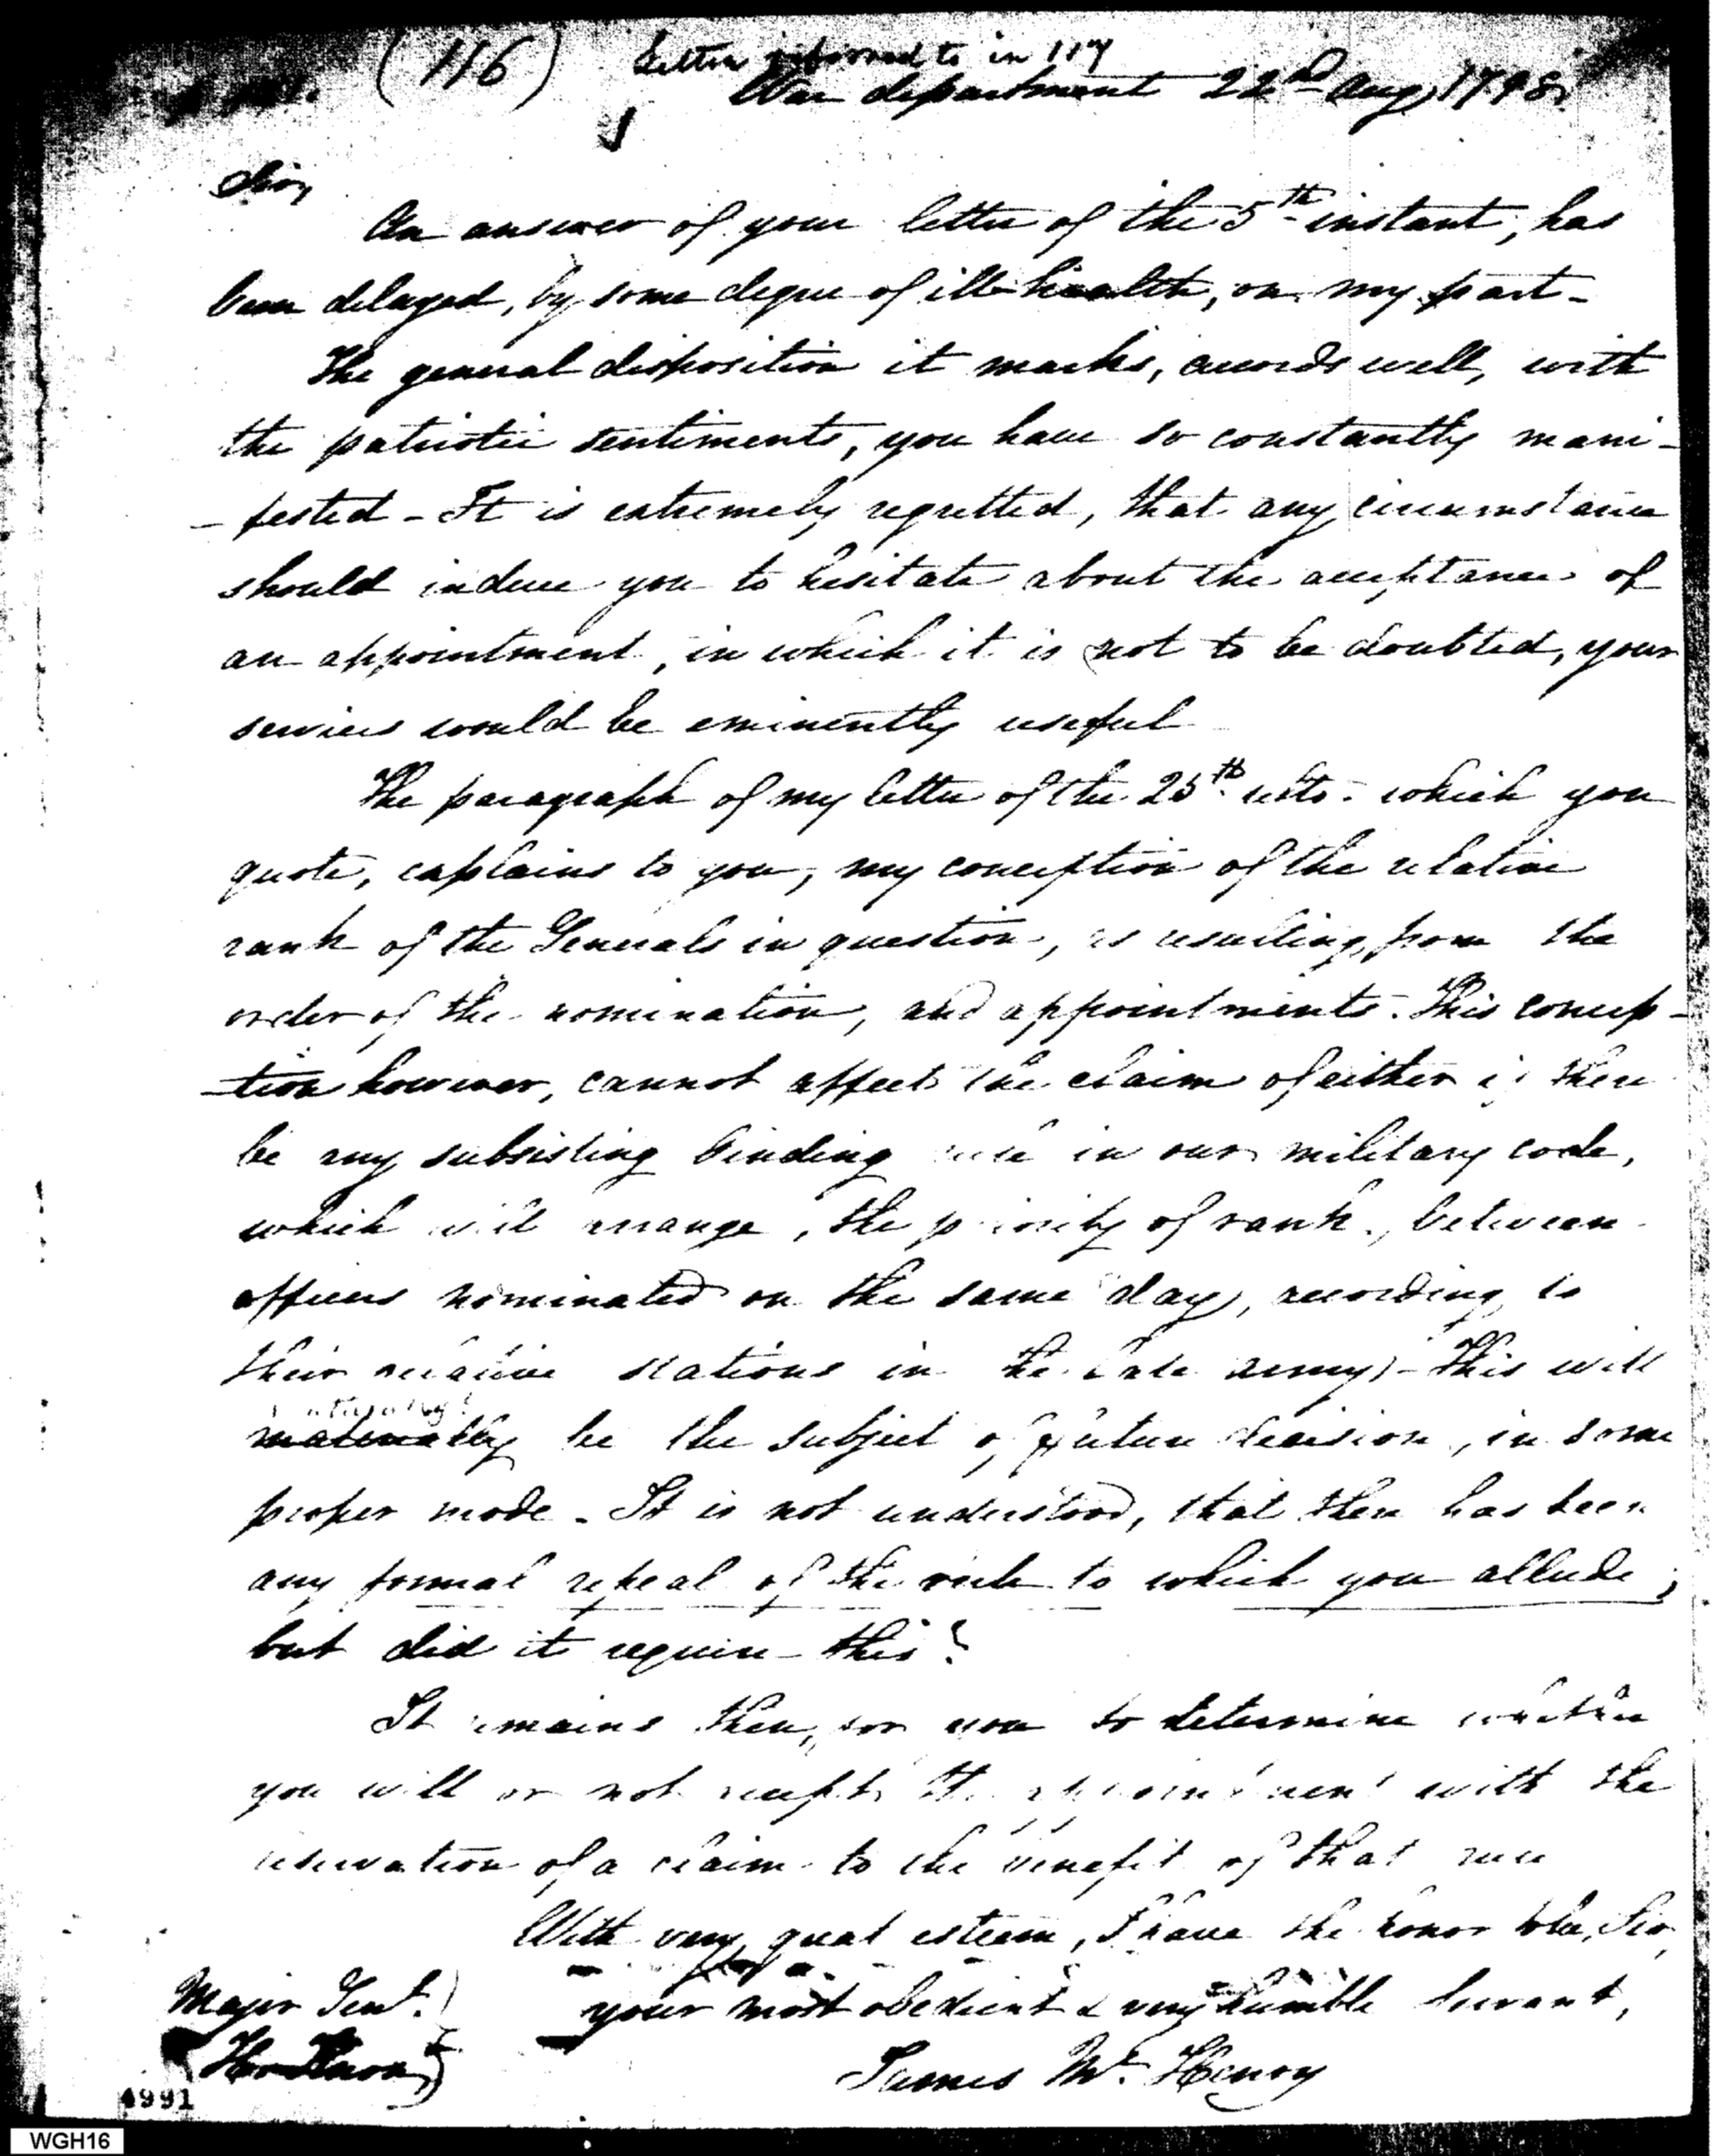 (116) Letter referred to in 117
War department 22nd Aug 1798.
Sir,
An answer of your letter of the 5th instant, has
been delayed, by some degree of ill-health, on my part-
The general disposition it marks, accords well, with
the patriotic sentiments, you have so constantly mani-
-fested - It is extremely regretted, that any circumstance
should induce you to hesitate about the acceptance of
an appointment, in which it is not to be doubted, your
services would be eminently useful
The paragraph of my letter of the 25th ulto. which you
quote, explains to you, my conception of the relative
rank of the Generals in question, as resulting from the
order of the nomination, and appointments. This concep-
-tion however, cannot affect the claim of either if there
be any subsisting binding rule in our military code,
which will arrange, the priority of rank, between
officers nominated on the same day, according to
their relative stations in the late army,- This will
naturally
materially be the subject of future decision, in some
proper mode - It is not understood, that there has been
any formal repeal of the rule to which you allude;
but did it require this?
It remains then, for you to determine whether
you will or not accept the appointment with the
reservation of a claim to the benefit of that rule
With very great esteem, I have the honor to be, Sir,
your most obedient & very humble servant,
James Mc. Henry
Major Genl.
Hr Knox
4991
WGH16